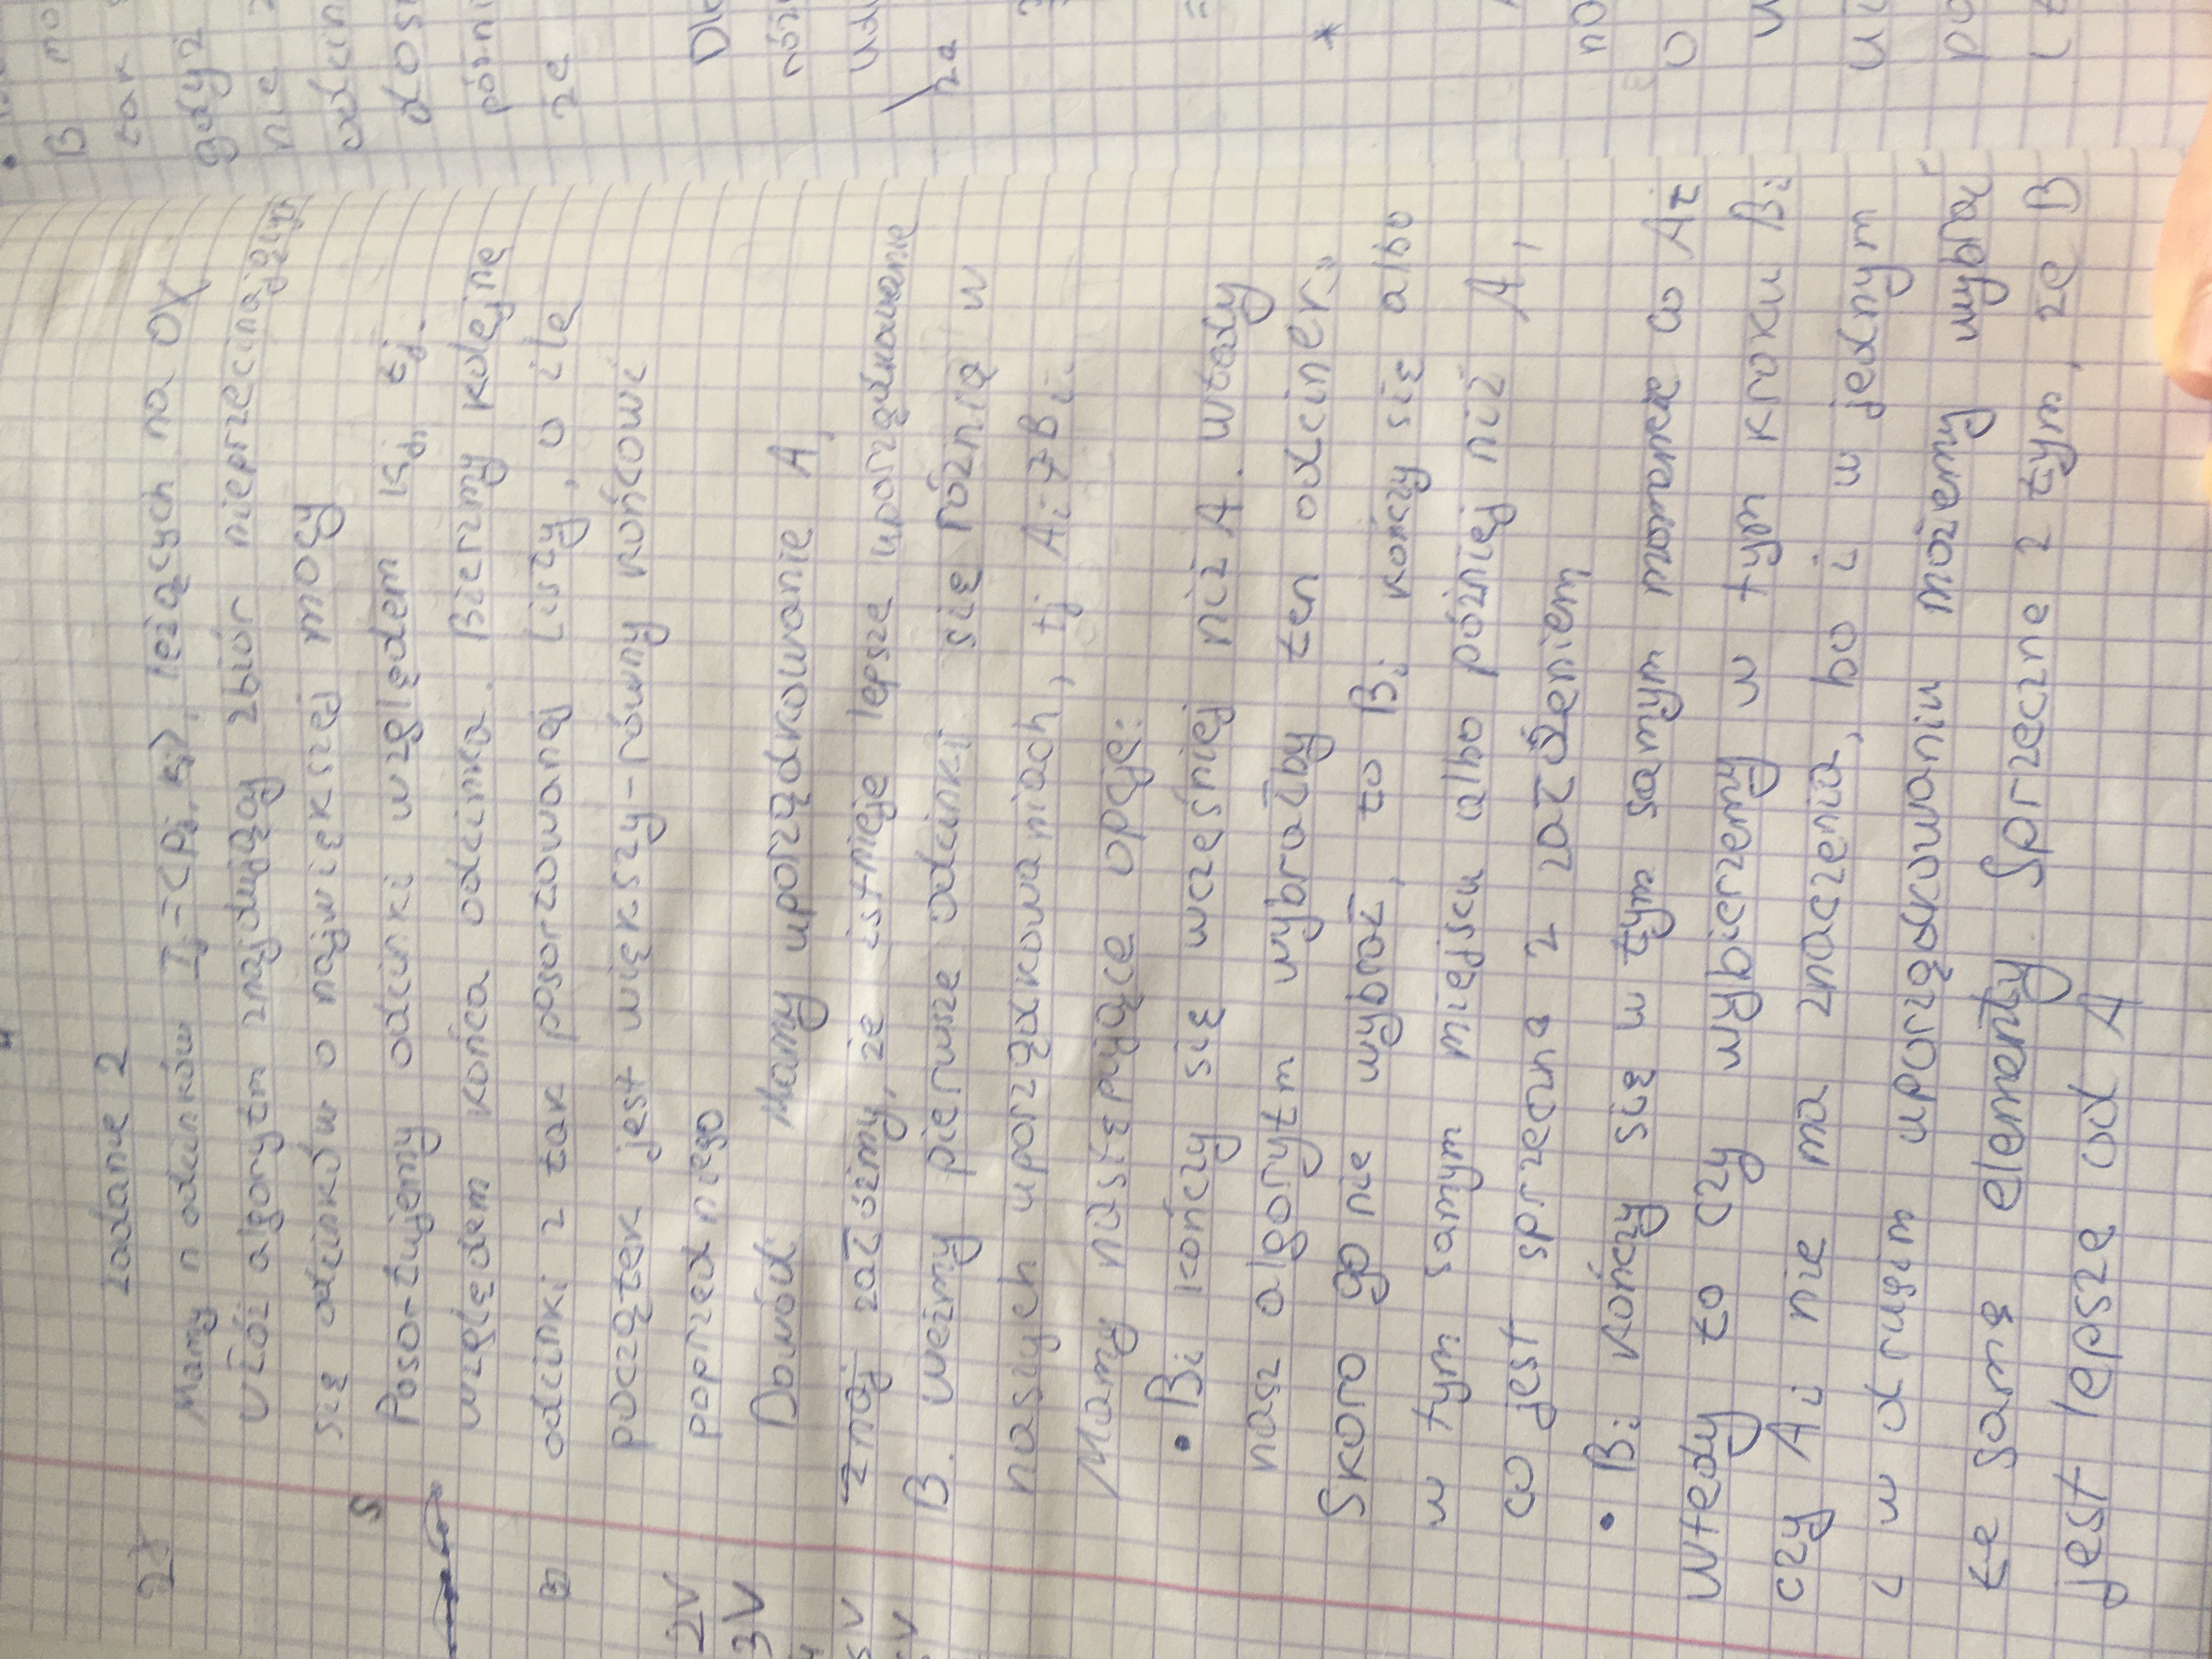 zadanie 2
Mamy n odcinków Ij = <Pj, kj>, leżących na OX
Ułóż algorytm znajdujący zbiór nieprzecinających
się odcinków o największej mocy
Posortujemy odcinki względem kj, tj.
względem końca odcinka. Bierzmy kolejne
odcinki z tak posortowanej listy, o ile
początek jest większy-równy końcowi
poprzedniego
Dowód: Mamy uporządkowanie A,
znaj załóżmy, że istnieje lepsze uporządkowanie
B. Weźmy pierwsze odcinki się różnią w
naszych uporządkowaniach, tj Ai ≠ Bi.
Mamy następujące opcje:
• Bi kończy się wcześniej niż A. Wtedy
nasz algorytm wybrałby ten odcinek.
Skoro go nie wybrał, to Bi kończy się albo
w tym samym miejscu albo później niż A,
co jest sprzeczne z założeniem
• Bi kończy się w tym samym momencie co Ai
Wtedy to czy wybierzemy w tym kroku Bi
czy Ai nie ma znaczenia, bo i w jednym
i w drugim uporządkowaniu możemy wybrać
te same elementy. Sprzeczne z tym, że B
jest lepsze od A
2V
3V
B mo
tak
gdyż
nie
odcin
późni
że